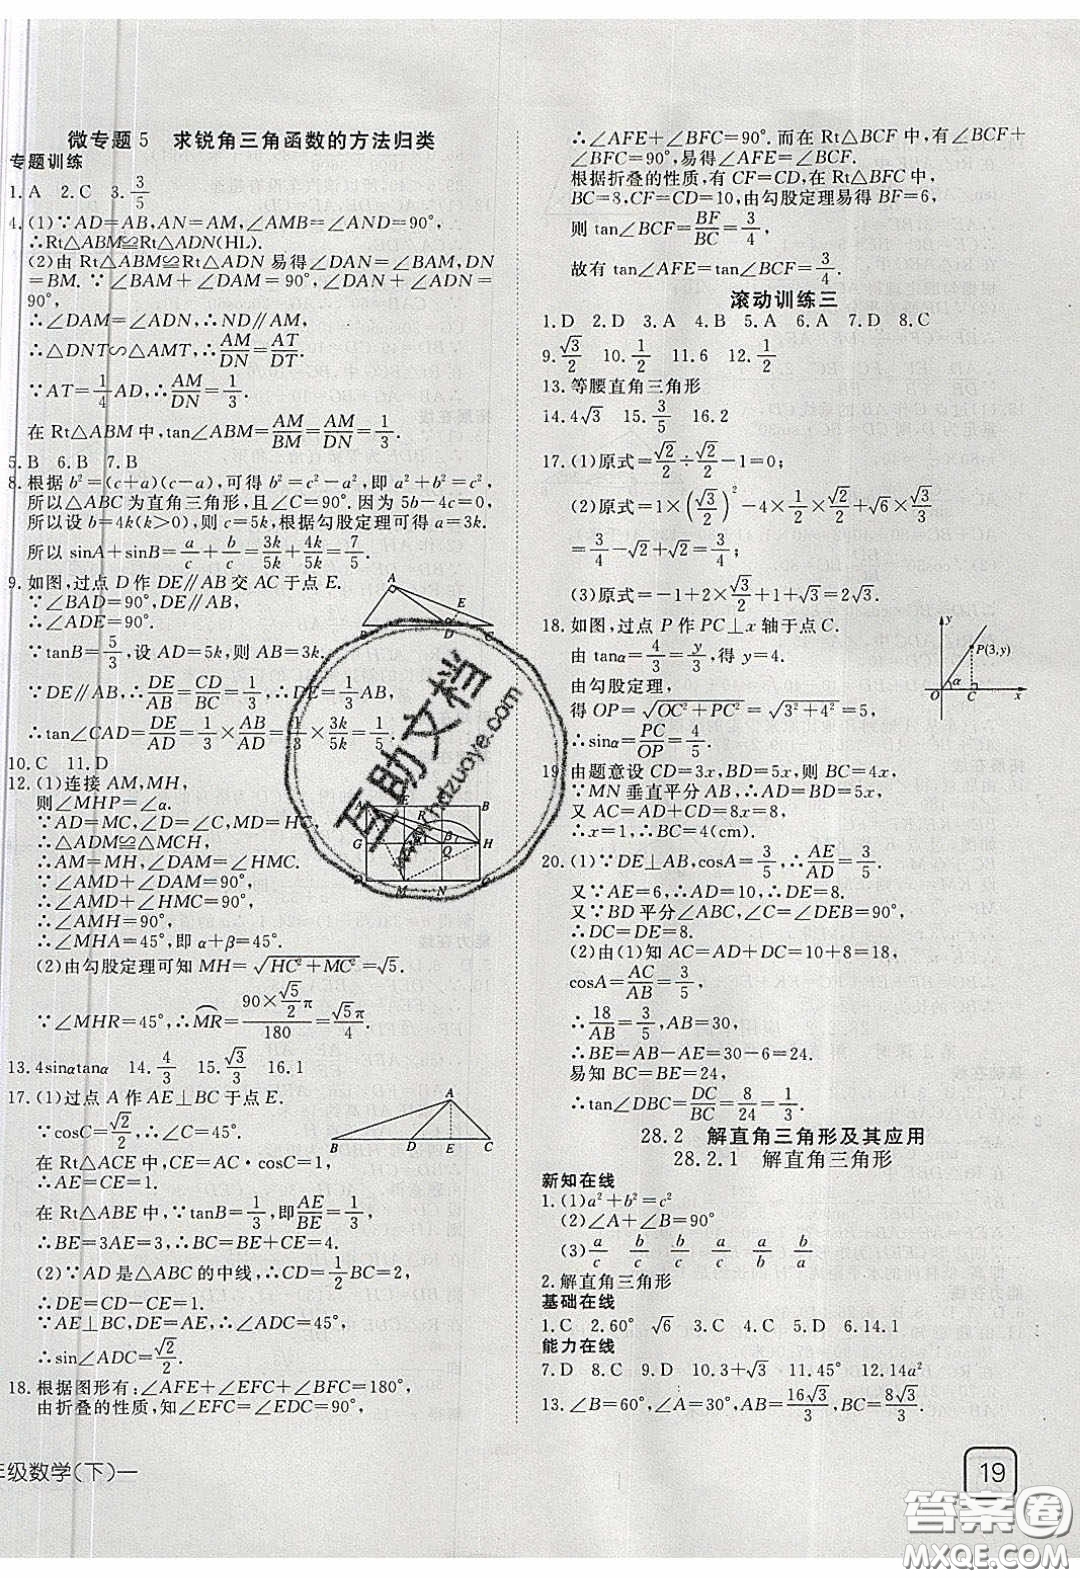 微专题5 求锐角三角函数的方法归类
专题训练
1.A 2.C 3.3/5
4.(1)∵AD=AB,AN=AM,∠AMB=∠AND=90°,
∴Rt△ABM≌Rt△ADN(HL).
(2)由 Rt△ABM≌Rt△ADN 易得∠DAN=∠BAM,DN
=BM.∵∠BAM+∠DAM=90°,∠DAN+∠ADN=
90°,
∴∠DAM=∠ADN,∴ND∥AM,
∴△DNT∽△AMT,∴AM/DN=AT/DT.
∵AT=1/4AD,∴AM/DN=1/3.
在 Rt△ABM 中,tan∠ABM=AM/BM=AM/DN=1/3.
5.B 6.B 7.B
8.根据 b²=(c+a)(c-a),可得 b²=c²-a²,即 a²+b²=c²,
所以△ABC 为直角三角形,∠C=90°.因为 5b-4c=0,
所以设 b=4k(k>0),则 c=5k,根据勾股定理可得 a=3k.
所以 sinA+sinB=a/c+b/c=3k/5k+4k/5k=7/5.
9.如图,过点 D 作 DE∥AB 交 AC 于点 E.
∵∠BAD=90°,DE∥AB,
∴∠ADE=90°.
∵tanB=5/3,设 AD=5k,则 AB=3k.
∵DE∥AB,∴DE/AB=CD/BC=1/3,∴DE=1/3AB,
∴tan∠CAD=DE/AD=1/3×AB/AD=1/3×3k/5k=1/5.
10.C 11.D
12.(1)连接 AM,MH,
则∠MHP=∠α.
∵AD=MC,∠D=∠C,MD=HC,
∴△ADM≌△MCH,
∴AM=MH,∠DAM=∠HMC.
∵∠AMD+∠DAM=90°,
∴∠AMD+∠HMC=90°,
∴∠AMH=90°,
∴∠MHA=45°,即 α+β=45°.
(2)由勾股定理可知 MH=√(HC²+MC²)=√5.
∵∠MHR=45°,∴MR=(90×(√5/2)π)/180=√5π/4.
13.4sinαtanα 14.4/3 15.√3/3 16.1
17.(1)过点 A 作 AE⊥BC 于点 E.
∵cosC=√2/2,∴∠C=45°.
在 Rt△ACE 中,CE=AC·cosC=1,
∴AE=CE=1.
在 Rt△ABE 中,∵tanB=1/3,即AE/BE=1/3,
∴BE=3AE=3,∴BC=BE+CE=4.
(2)∵AD 是△ABC 的中线,∴CD=1/2BC=2,
∴DE=CD-CE=1.
∵AE⊥BC,DE=AE,∴∠ADC=45°,
∴sin∠ADC=√2/2.
18.根据图形有:∠AFE+∠EFC+∠BFC=180°,
由折叠的性质,知∠EFC=∠EDC=90°,
级数学(下)一
∴∠AFE+∠BFC=90°.而在 Rt△BCF 中,有∠BCF+
∠BFC=90°,易得∠AFE=∠BCF.
根据折叠的性质,有 CF=CD,在 Rt△BFC 中,
BC=8,CF=CD=10,由勾股定理易得 BF=6,
则 tan∠BCF=BF/BC=3/4,
故有 tan∠AFE=tan∠BCF=3/4.
滚动训练三
1.D 2.D 3.A 4.B 5.A 6.A 7.D 8.C
9.√3/2 10.1/2 11.6 12.1/2
13.等腰直角三角形
14.4√3 15.3/5 16.2
17.(1)原式=√2/2÷√2/2-1=0;
(2)原式=1×(√3/2)²-4×1/2×√2/2+√6×√3/3
=3/4-√2+√2=3/4;
(3)原式=-1+2×√3/2+1/2=√3-1/2.
18.如图,过点 P 作 PC⊥x 轴于点 C.
由 tanα=4/3=y/3,得 y=4.
由勾股定理,
得 OP=√(OC²+PC²)=√(3²+4²)=5,
∴sinα=PC/OP=4/5.
19.由题意设 CD=3x,BD=5x,则 BC=4x,
∵MN 垂直平分 AB,∴AD=BD=5x.
又∵AC=AD+CD=8(cm),
∴x=1,∴BC=4(cm).
20.(1)∵DE⊥AB,cosA=3/5,∴AE/AD=3/5.
又∵AE=6,∴AD=10,∴DE=8.
又∵BD 平分∠ABC,∠C=∠DEB=90°,
∴DC=DE=8.
(2)由(1)知 AC=AD+DC=10+8=18,
cosA=AC/AB=3/5,
∴18/AB=3/5,AB=30,
∴BE=AB-AE=30-6=24.
易知 BC=BE=24,
∴tan∠DBC=DC/BC=8/24=1/3.
28.2 解直角三角形及其应用
28.2.1 解直角三角形
新知在线
1.(1)a²+b²=c²
(2)∠A+∠B=90°
(3)a/c b/c b/c a/c a/b b/a
2.解直角三角形
基础在线
1.C 2.60° √6 3.C 4.C 5.D 6.14.1
能力在线
7.D 8.C 9.D 10.3+√3 11.45° 12.14a²
13.∠B=60°,∠A=30°,AB=16√3/3,BC=8√3/3.
19
互助文档
hdzuoye.com
答案圈
MXQE.COM